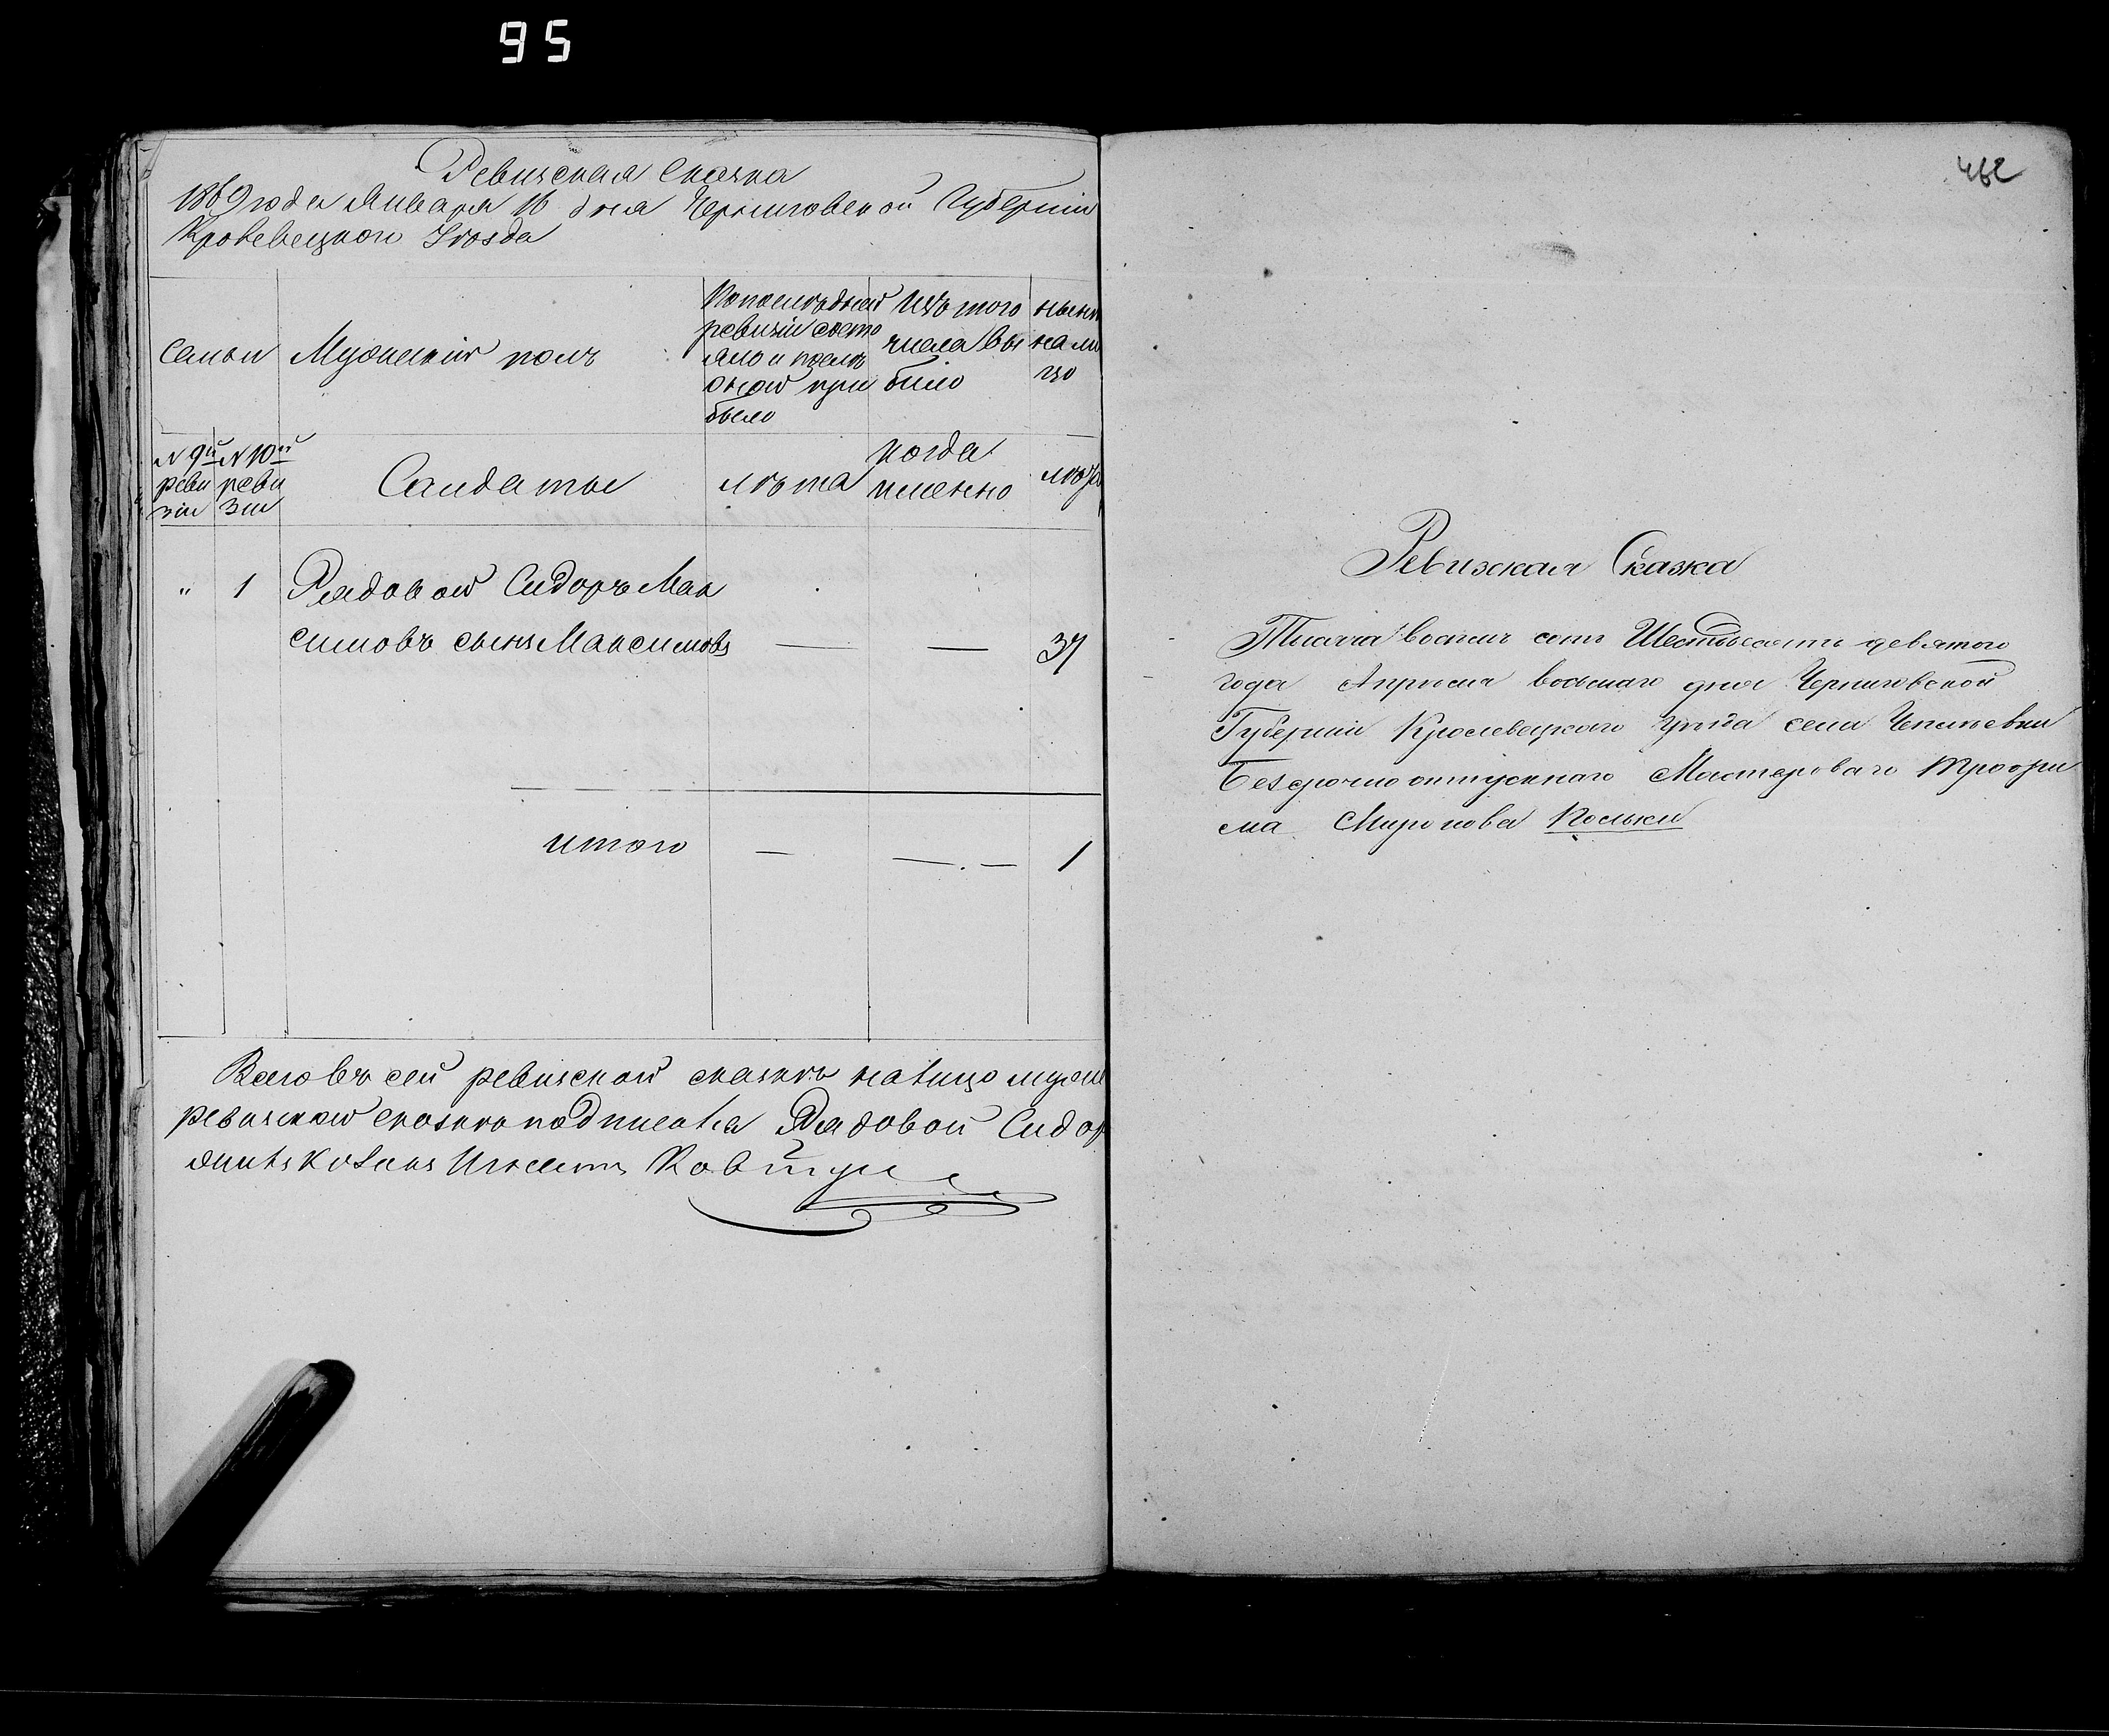 95
Ревизская сказка
1869 года Января 16 дня Черниговской Губернии
Кролевецкого Уѣзда
Семьи
Мужескій полъ
По послѣдней
ревизіи состо
яло и послѣ
оной при
было
Изъ того
числа вы
было
нынѣ
на ли
цо
№ 9й
реви
зіи
№ 10й
реви
зіи
Салдаты
лѣта
когда
именно
лѣта
" 1 Рядовой Сидоръ Мак
симовъ сынъ Максимовъ — — 37
итого — — . — 1
Всего въ сей ревизской сказкѣ налицо муже
ревизской сказкѣ подписалъ Рядовой Сидор
козакъ
462
Ревизская Сказка
Тысяча восемь сотъ Шестьдесятъ девятого
года Апрѣля восьмаго дня Черниговской
Губерніи Кролевецкаго уѣзда села Чепліевки
Безсрочно отпускнаго Мастероваго Трофи
ма Миронова Кольки